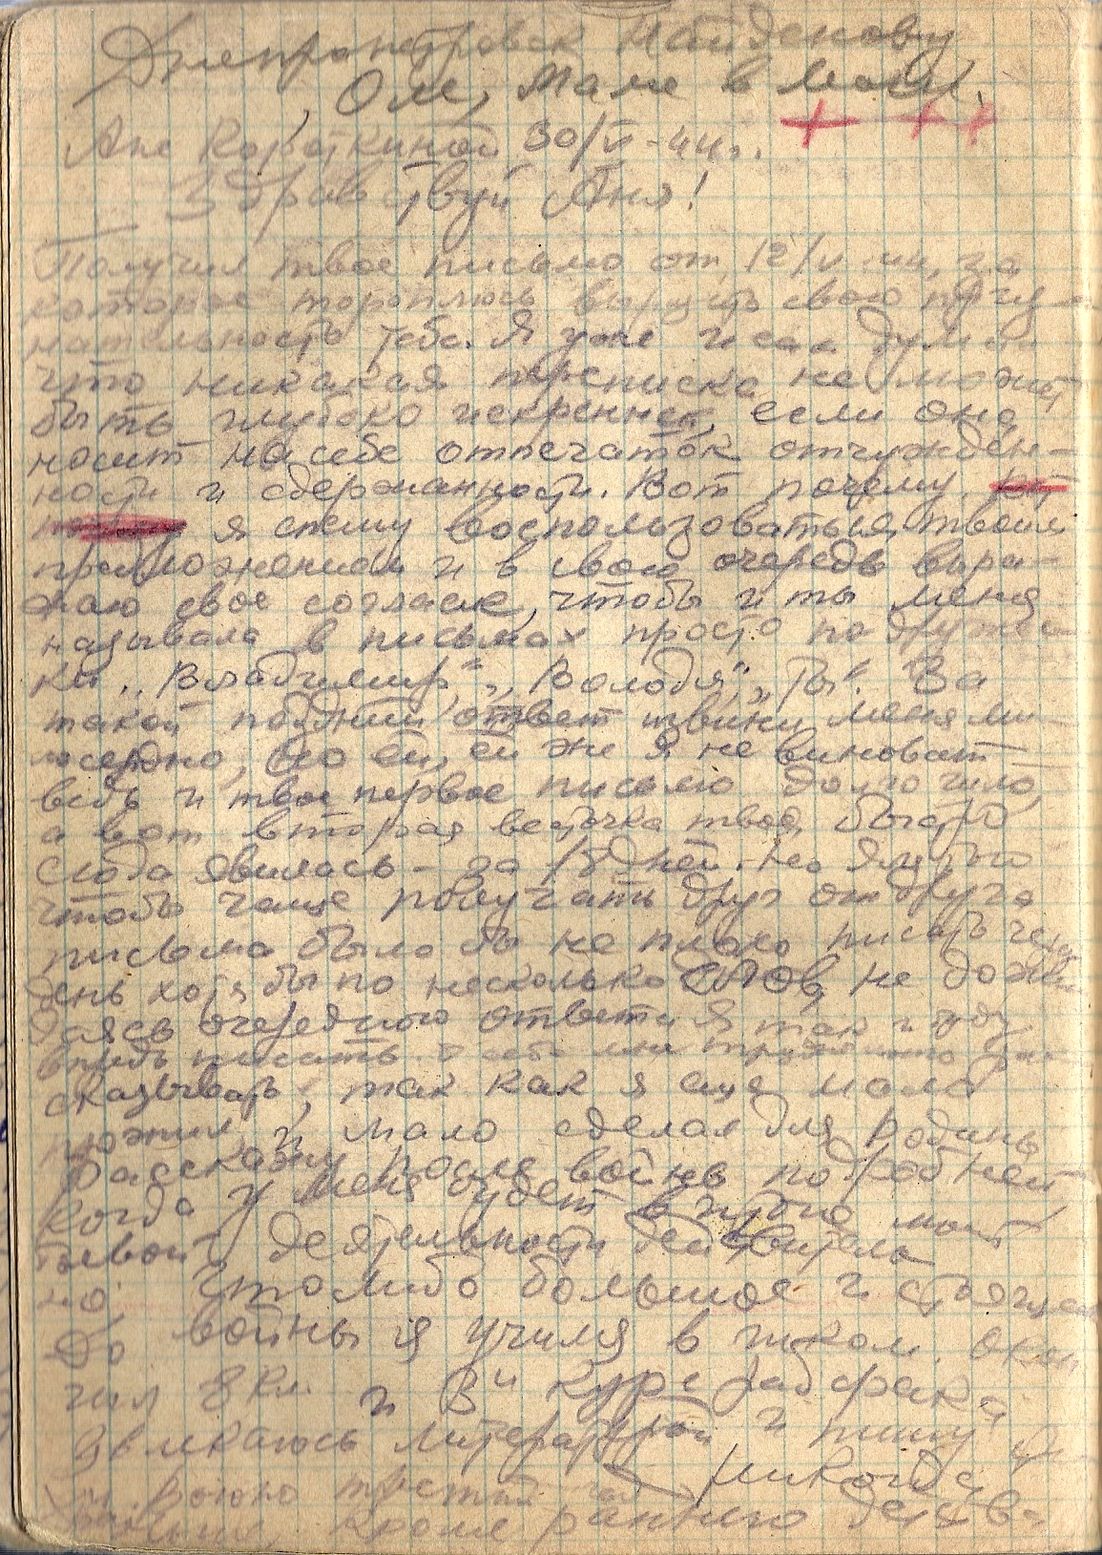 Днепропетровск Найденову,
Оле, Маме в Москв.
Ане Короткиной 30/V-44г.
Здравствуй Аня!
Получил твое письмо от 12/V-44, за
которое тороплюсь выразить свою призна-
тельность тебе. Я уже и сам думал
что никакая переписка не может
быть глубоко искренней, если она
носит на себе отпечаток отчужден-
ности и сдержанности. Вот почему
я спешу воспользоваться твоим
предложением и в свою очередь выра-
жаю свое согласие, чтобы и ты меня
называла в письмах просто по дружес-
ки „Владимир", „Володя", „Ты". За
такой поздний ответ извини меня ми-
лосердно, но ей, ей же я не виноват
ведь и твое первое письмо долго шло,
а вот вторая весточка твоя быстро
сюда явилась - за 18 дней. Но я думаю
чтобы чаще получать друг от друга
письма было бы не плохо писать через
день хотя бы по несколько слов, не дожи-
даясь очередного ответа. Я так и буду
впредь писать. О себе мне трудно что рас-
сказывать, так как я еще мало
пожил и мало сделал для Родины
Расскажу после войны подробней
когда у меня будет в
боевой деятельности действитель
но что либо большое и стоящее
До войны я учился в школе, окон
чил 8 кл. и 3й курс рабфака
Увлекаюсь литературой и пишу
Воюю третий Никогда
раньше, кроме раннего детства